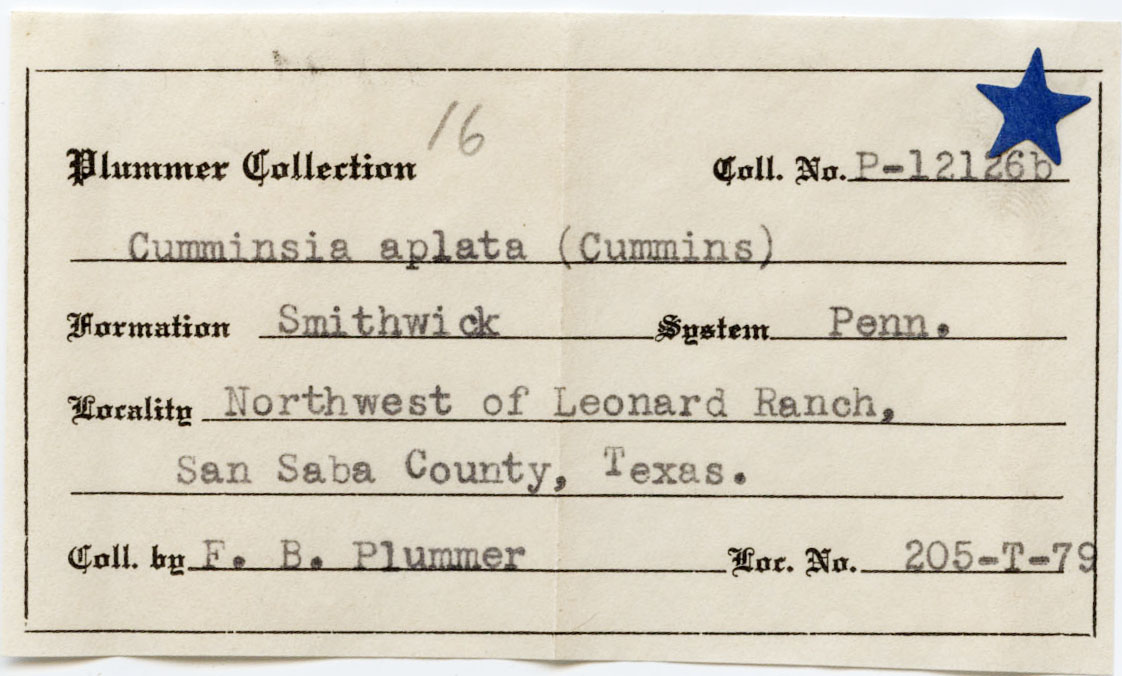 16
Plummer Collection Coll. No. P-12126b
Cumminsia aplata (Cummins)
Formation Smithwick System Penn.
Locality Northwest of Leonard Ranch,
San Saba County, Texas.
Coll. by F. B. Plummer Loc. No. 205-T-79